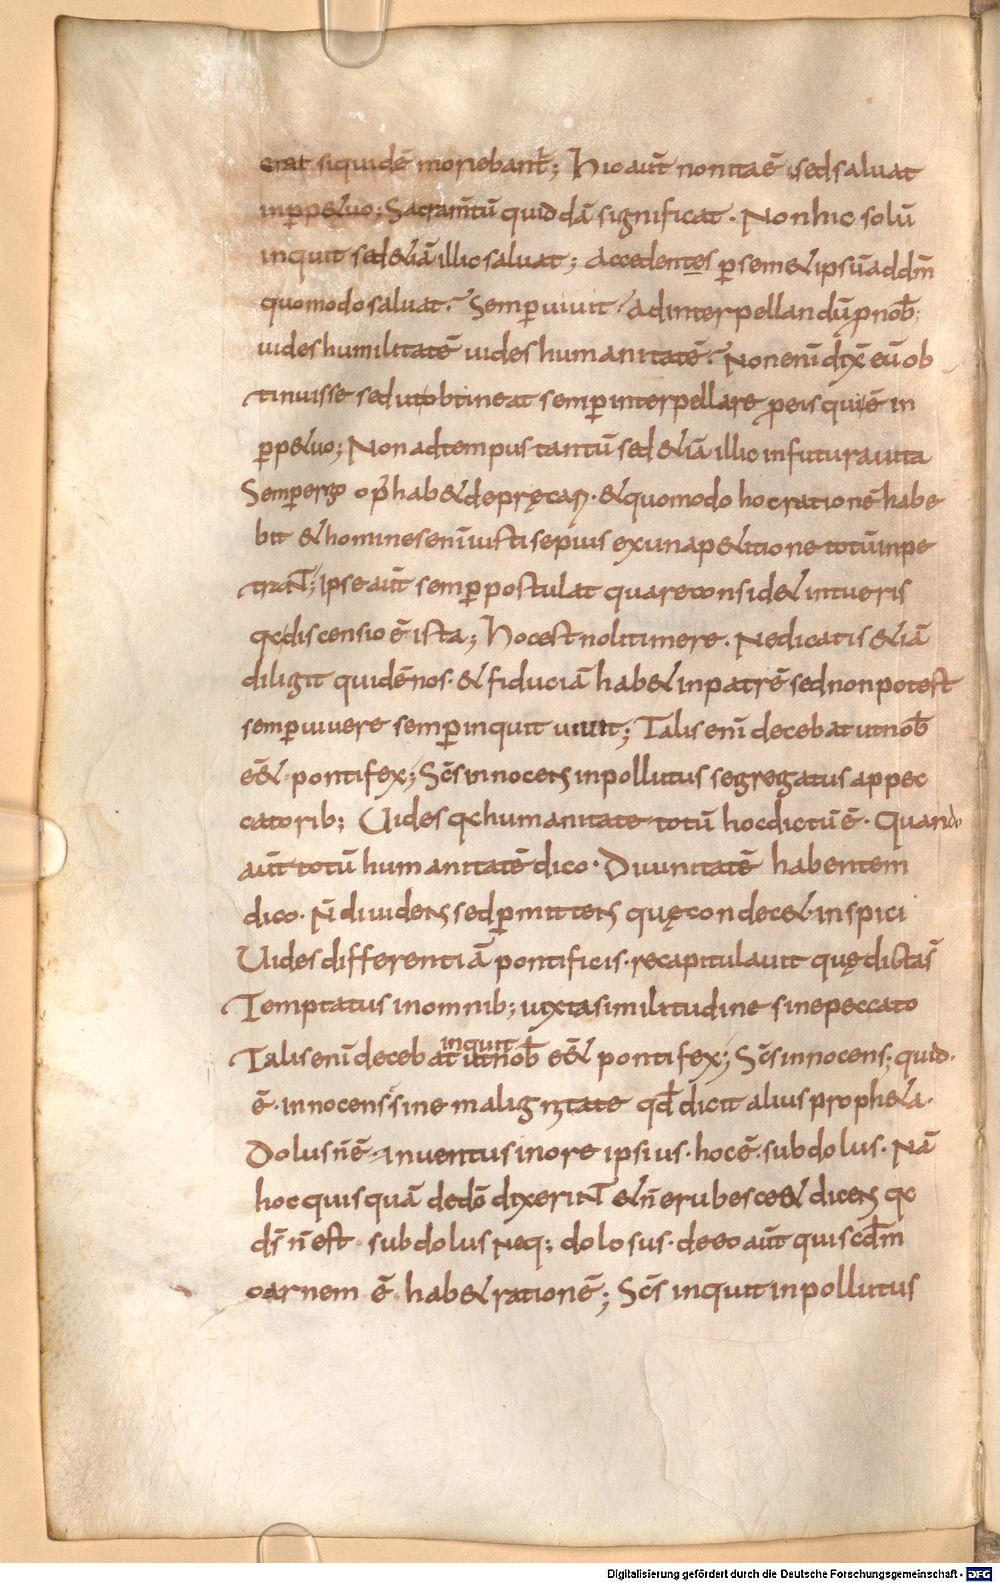 erat siquidē moriebant̄; hic aut̄ non ita ē sed saluat
in ꝑpetuo; Sacram̄tū quiddā significat · Non hic solū
inquit sed & iā illic saluat; Accedentes ꝑ semet ipsū ad dm̄
quomodo saluat? Semꝑ uiuit ad interpellandū ꝓ nob̄;
uides humilitatē uides humanitatē? Non enī dix̄ eū ob
tinuisse sed ut obtineat semꝑ interpellare ꝓ eis qui ē in
ꝑpetuo; Non ad tempus tantū sed & iā illic in futura uita
Semꝑ ergo op̄ habet deprecari · & quomodo hoc rationē habe
bit & homines enī iusti sepius ex una petitione totū inpe
traNT; ipse aut̄ semꝑ postulat quare considet intueris
qc discensio ē ista; Hoc est noli timere. Ne dicatis & iā
diligit quidē nos · & fiduciā habet in patrē sed non potest
semꝑ uiuere semꝑ inquit uiuit; Talis enī decebat ut nob̄
eēt pontifex; Sc̄s innocens inpollutus segregatus a ppec
catorib; Uides qc humanitate totū hoc dictū ē · Quando
aut̄ totū humanitatē dico · Diuinitatē habentem
dico · N̄ diuidens sed ꝑmittens quę condecet inspici
Uides differentiā pontificis · recapitulauit quę dicta s̄
Temptatus in omnib; iuxta similitudine sine peccato
inquit
Talis enī decebat ut nob̄ eēt pontifex; Sc̄s innocens; quid ·
ē · innocens sine malignitate qd̄ dicit alius propheta ·
Dolus n̄ ē inuentus in ore ipsius · hoc ē · subdolus · Nā
hoc quisquā de dō dixeriNT & n̄ erubescet dicens qc
ds̄ n̄ est subdolus neq; dolosus · de eo aut̄ qui scdm̄
carnem ē habet rationē; Sc̄s inquit inpollutus
Digitalisierung gefördert durch die Deutsche Forschungsgemeinschaft - DFG